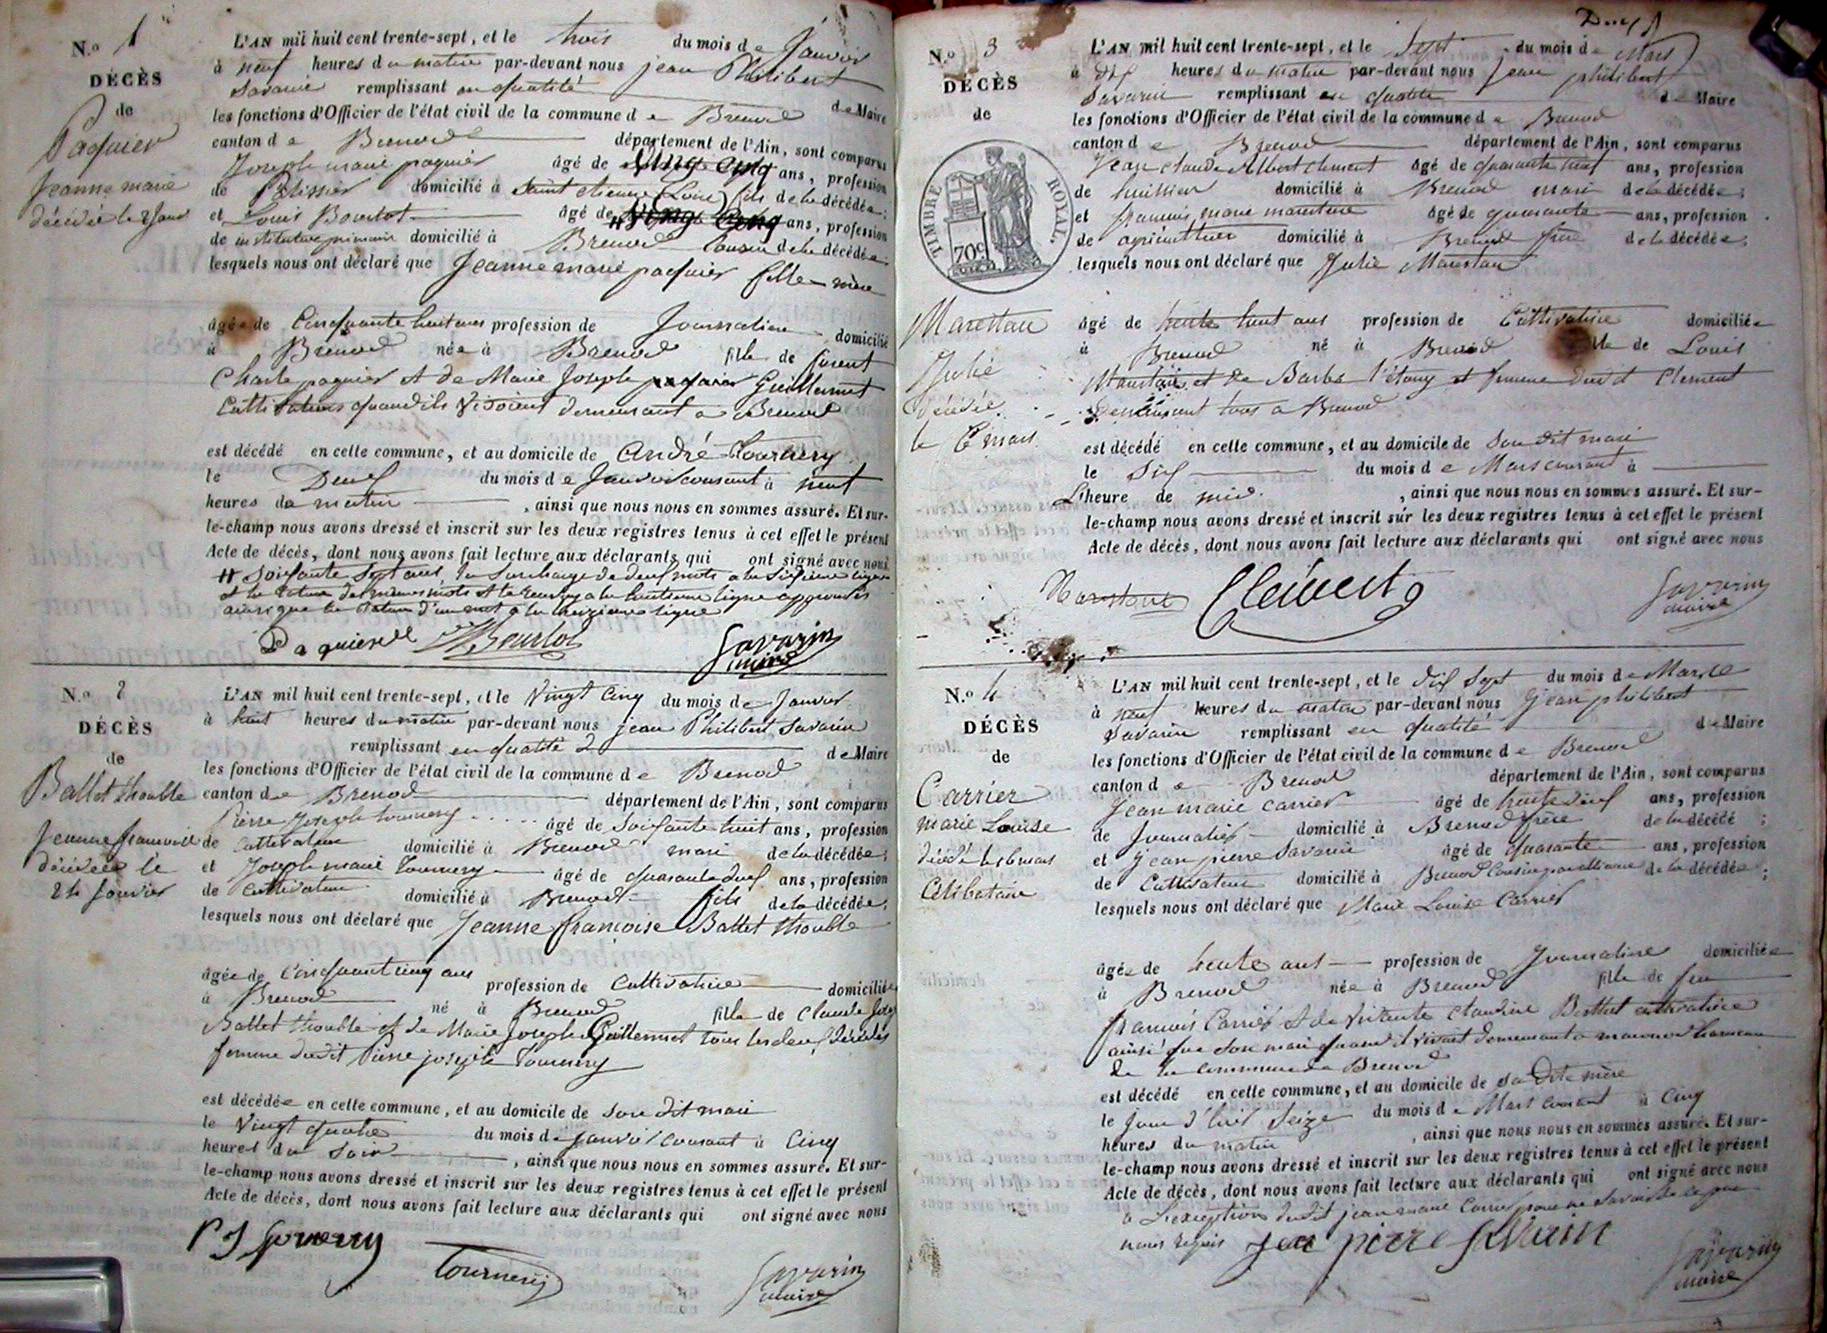 N.º 1
DÉCÈS
de
Paquier
Jeanne marie
décédée le 2 Janv
L'AN mil huit cent trente-sept, et le trois du mois de Janvier
à neuf heures du matin par-devant nous jean Philibert
Savarin remplissant en qualité de Maire
les fonctions d'Officier de l'état civil de la commune de Brenod
canton de Brenod département de l'Ain, sont comparus
Joseph marie paquier âgé de Vingt Cinq ans, profession
de domicilié à Saint etienne (Loire) fils de la décédée;
et Louis Bourlot âgé de Vingt Cinq ans, profession
de instituteur primaire domicilié à Brenod Cousin de la décédée;
lesquels nous ont déclaré que Jeanne marie paquier fille mère
âgée de Cinquante huit ans profession de Journalière domicilié
à Brenod née à Brenod fille de furent
Charle paquier et de Marie Joseph Guillermet
Cultivateurs quand ils Vivoient demeurant a Brenod
est décédé en cette commune, et au domicile de André Tournery
le Deux du mois de Janvier courant à neuf
heures du matin, ainsi que nous nous en sommes assuré. Et sur-
le-champ nous avons dressé et inscrit sur les deux registres tenus à cet effet le présent
Acte de décès, dont nous avons fait lecture aux déclarants qui ont signé avec nous
# Soixante Sept ans, la Surcharge de deux mots a la Sixieme ligne
et la rature des mêmes mots et le renvoy a la huitieme ligne approuvés
ainsi que la rature d'un mot a la treizieme ligne
Paquier Bourlot Savarin
maire
N.º 2
DÉCÈS
de
Ballet thouble
Jeanne françoise
décédée le
24 Janvier
L'AN mil huit cent trente-sept, et le Vingt Cinq du mois de Janvier
à huit heures du matin par-devant nous jean Philibert Savarin
remplissant en qualité de Maire
les fonctions d'Officier de l'état civil de la commune de Brenod
canton de Brenod département de l'Ain, sont comparus
Pierre Joseph tournery âgé de Soixante huit ans, profession
de Cultivateur domicilié à Brenod mari de la décédée;
et Joseph marie Tournery âgé de quarante deux ans, profession
de Cultivateur domicilié à Brenod fils de la décédée,
lesquels nous ont déclaré que Jeanne françoise Ballet thouble
âgée de Cinquant cinq ans profession de Cultivatrice domiciliée
à Brenod né à Brenod fille de Claude Joseph
Ballet thouble et de Marie Joseph Guillermet tous les deux décédés
femme dudit Pierre joseph Tournery
est décédée en cette commune, et au domicile de son dit mari
le Vingt quatre du mois de janvier courant à Cinq
heures du soir, ainsi que nous nous en sommes assuré. Et sur-
le-champ nous avons dressé et inscrit sur les deux registres tenus à cet effet le présent
Acte de décès, dont nous avons fait lecture aux déclarants qui ont signé avec nous
P J tournery
Tournery
Savarin
maire
N.º 3
DÉCÈS
de
TIMBRE ROYAL.
70c
Marestan
Julie
décédée
le 6 mars
L'AN mil huit cent trente-sept, et le Sept du mois de Mars
à dix heures du matin par-devant nous jean philibert
Savarin remplissant en qualité de Maire
les fonctions d'Officier de l'état civil de la commune de Brenod
canton de Brenod département de l'Ain, sont comparus
Jean claude Albert clement âgé de quarante neuf ans, profession
de huissier domicilié à Brenod mari de la décédée;
et françois marie marestan âgé de quarante ans, profession
de agriculteur domicilié à Brenod frère de la décédée;
lesquels nous ont déclaré que Julie Marestan
âgé de trente huit ans profession de Cultivatrice domiciliée
à Brenod né à Brenod fille de Louis
Marestan et de Barbe l'étang et femme dudit Clement
demeurant tous a Brenod
est décédé en cette commune, et au domicile de Son dit mari
le Six du mois de Mars courant à
L'heure de midi, ainsi que nous nous en sommes assuré. Et sur-
le-champ nous avons dressé et inscrit sur les deux registres tenus à cet effet le présent
Acte de décès, dont nous avons fait lecture aux déclarants qui ont signé avec nous
Marestan Clément Savarin
maire
N.º 4
DÉCÈS
de
Carrier
marie Louise
décédé le 16 mars
Célibataire
L'AN mil huit cent trente-sept, et le dix Sept du mois de Mars
à neuf heures du matin par-devant nous jean philibert
Savarin remplissant en qualité de Maire
les fonctions d'Officier de l'état civil de la commune de Brenod
canton de Brenod département de l'Ain, sont comparus
Jean marie carrier âgé de trente deux ans, profession
de Journalier domicilié à Brenod frère de la décédé;
et jean pierre Savarin âgé de quarante ans, profession
de Cultivateur domicilié à Brenod Cousin par alliance de la décédée;
lesquels nous ont déclaré que Marie Louise Carrier
âgée de trente ans profession de Journalière domiciliée
à Brenod née à Brenod fille de feu
francois Carrier et de Claudine Berthet cultivatrice
ainsi que son mari quand il vivait demeurant a hameau
de la commune de Brenod
est décédé en cette commune, et au domicile de sa dite mère
le Jour d'hier Seize du mois de Mars courant à Cinq
heures du matin, ainsi que nous nous en sommes assuré. Et sur-
le-champ nous avons dressé et inscrit sur les deux registres tenus à cet effet le présent
Acte de décès, dont nous avons fait lecture aux déclarants qui ont signé avec nous
a L'exception dudit jean marie Carrier pour ne Savoir de ce que
nous requis jean pierre Savarin Savarin
maire